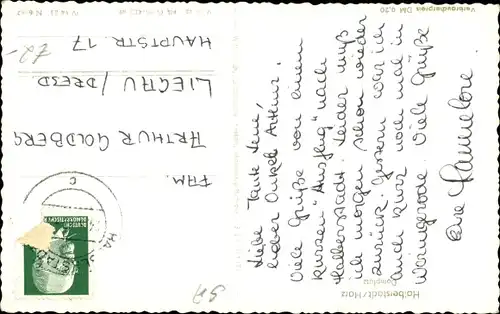 Halberstadt/Harz
Domplatz
Liebe Tante Lene,
lieber Onkel Arthur,
Viele Grüße von einem
kurzen "Ausflug" nach
Halberstadt. Leider muß
ich morgen schon wieder
zurück. Gestern war ich
auch kurz noch mal in
Wernigerode. Viele Grüße
Eure Hannelore.
Verbraucherpreis DM 0,20
DEUTSCHE
DEMOKRATISCHE
FAM.
ARTHUR GOLDBERG
LIEGAU / DRESD.
HAUPTSTR. 17